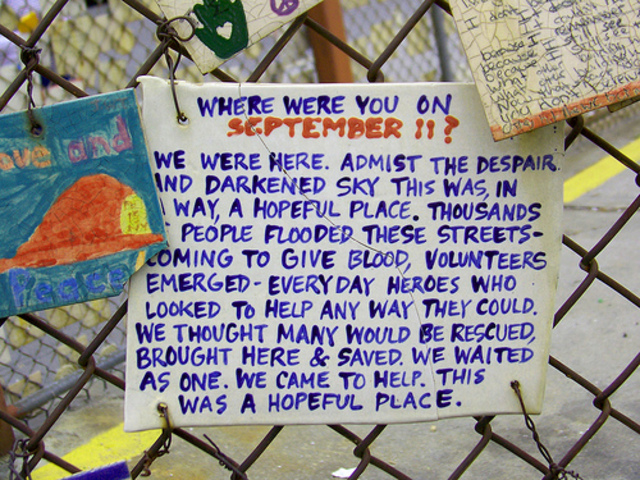 WHERE WERE YOU ON
SEPTEMBER 11?
WE WERE HERE. ADMIST THE DESPAIR
AND DARKENED SKY THIS WAS, IN
A WAY, A HOPEFUL PLACE. THOUSANDS
PEOPLE FLOODED THESE STREETS-
COMING TO GIVE BLOOD, VOLUNTEERS
EMERGED - EVERYDAY HEROES WHO
LOOKED TO HELP ANY WAY THEY COULD.
WE THOUGHT MANY WOULD BE RESCUED,
BROUGHT HERE & SAVED. WE WAITED
AS ONE. WE CAME TO HELP. THIS
WAS A HOPEFUL PLACE.
and
Peace